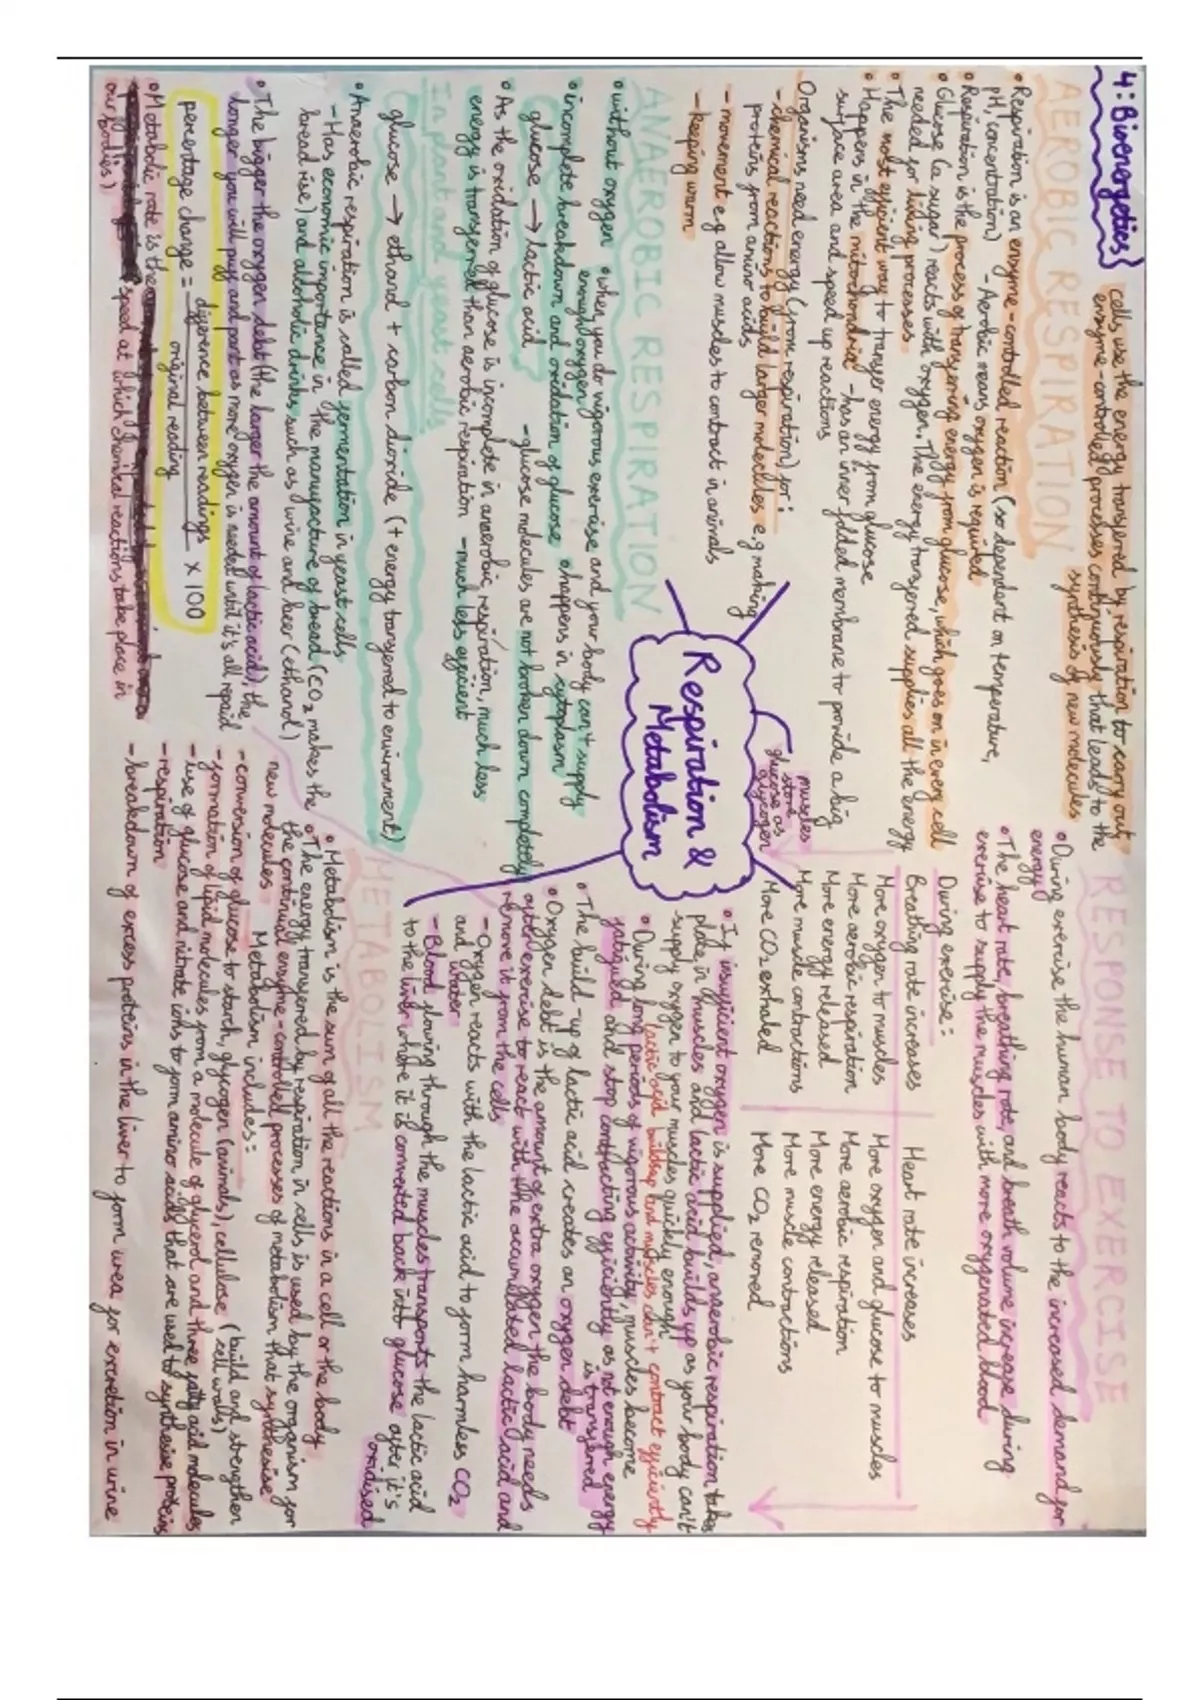 4: Bioenergetics
cells use the energy transferred by respiration to carry out
enzyme-controlled processes continuously that leads to the
synthesis of new molecules
AEROBIC RESPIRATION
• Respiration is an enzyme-controlled reaction (so dependent on temperature,
pH, concentration) - Aerobic means oxygen is required
• Respiration is the process of transferring energy from glucose, which goes on in every cell
• Glucose (a sugar) reacts with oxygen. The energy transferred supplies all the energy
needed for living processes
• The most efficient way to transfer energy from glucose
• Happens in the mitochondria - has an inner folded membrane to provide a big
surface area and speed up reactions
Organisms need energy (from respiration) for:
- chemical reactions to build larger molecules e.g making
proteins from amino acids
- movement e.g allow muscles to contract in animals
- keeping warm
ANAEROBIC RESPIRATION
• without oxygen • when you do vigorous exercise and your body can't supply
enough oxygen
• incomplete breakdown and oxidation of glucose • happens in cytoplasm
glucose → lactic acid - glucose molecules are not broken down completely
• As the oxidation of glucose is incomplete in anaerobic respiration, much less
energy is transferred than aerobic respiration - much less efficient
In plant and yeast cells
glucose → ethanol + carbon dioxide (+ energy transferred to environment)
• Anaerobic respiration is called fermentation in yeast cells
- Has economic importance in the manufacture of bread (CO₂ makes the
bread rise) and alcoholic drinks such as wine and beer (ethanol)
• The bigger the oxygen debt (the larger the amount of lactic acid), the
longer you will puff and pant as more oxygen is needed until it's all repaid
percentage change = difference between readings / original reading × 100
• Metabolic rate is the
speed at which chemical reactions take place in
our bodies)
Respiration &
Metabolism
muscles
store
glucose as
glycogen
RESPONSE TO EXERCISE
• During exercise the human body reacts to the increased demand for
energy
• The heart rate, breathing rate, and breath volume increase during
exercise to supply the muscles with more oxygenated blood
During exercise:
Breathing rate increases
More oxygen to muscles
More aerobic respiration
More energy released
More muscle contractions
More CO₂ exhaled
Heart rate increases
More oxygen and glucose to muscles
More aerobic respiration
More energy released
More muscle contractions
More CO₂ removed
• If insufficient oxygen is supplied, anaerobic respiration takes
place in muscles and lactic acid builds up as your body can't
supply oxygen to your muscles quickly enough
lactic acid buildsup and muscles don't contract efficiently
• During long periods of vigorous activity, muscles become
fatigued and stop contracting efficiently as not enough energy
is transferred
• The build-up of lactic acid creates an oxygen debt
• Oxygen debt is the amount of extra oxygen the body needs
after exercise to react with the accumulated lactic acid and
remove it from the cells
- Oxygen reacts with the lactic acid to form harmless CO₂
and water
- Blood flowing through the muscles transports the lactic acid
to the liver where it is converted back into glucose after it's
oxidised
METABOLISM
• Metabolism is the sum of all the reactions in a cell or the body
• The energy transferred by respiration in cells is used by the organism for
the continual enzyme-controlled processes of metabolism that synthesise
new molecules Metabolism includes:
- conversion of glucose to starch, glycogen (animals), cellulose (build and strengthen
cell walls)
- formation of lipid molecules from a molecule of glycerol and three fatty acid molecules
- use of glucose and nitrate ions to form amino acids that are used to synthesise proteins
- respiration
- breakdown of excess proteins in the liver to form urea for excretion in urine